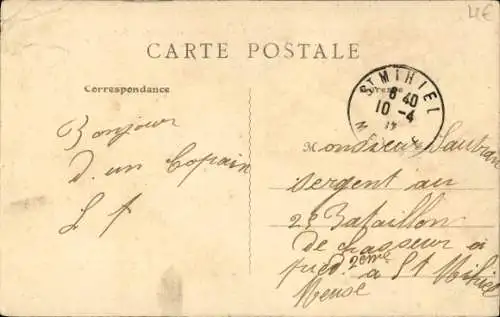 4€
CARTE POSTALE
Correspondance
Adresse
ST MIHIEL
8 40
10 -4
MEUSE
Bonjour
d. un Copain
L t
Monsieur Sautran
sergent au
2e Bataillon
de chasseur a
pied 2ème a St Mihiel
Meuse